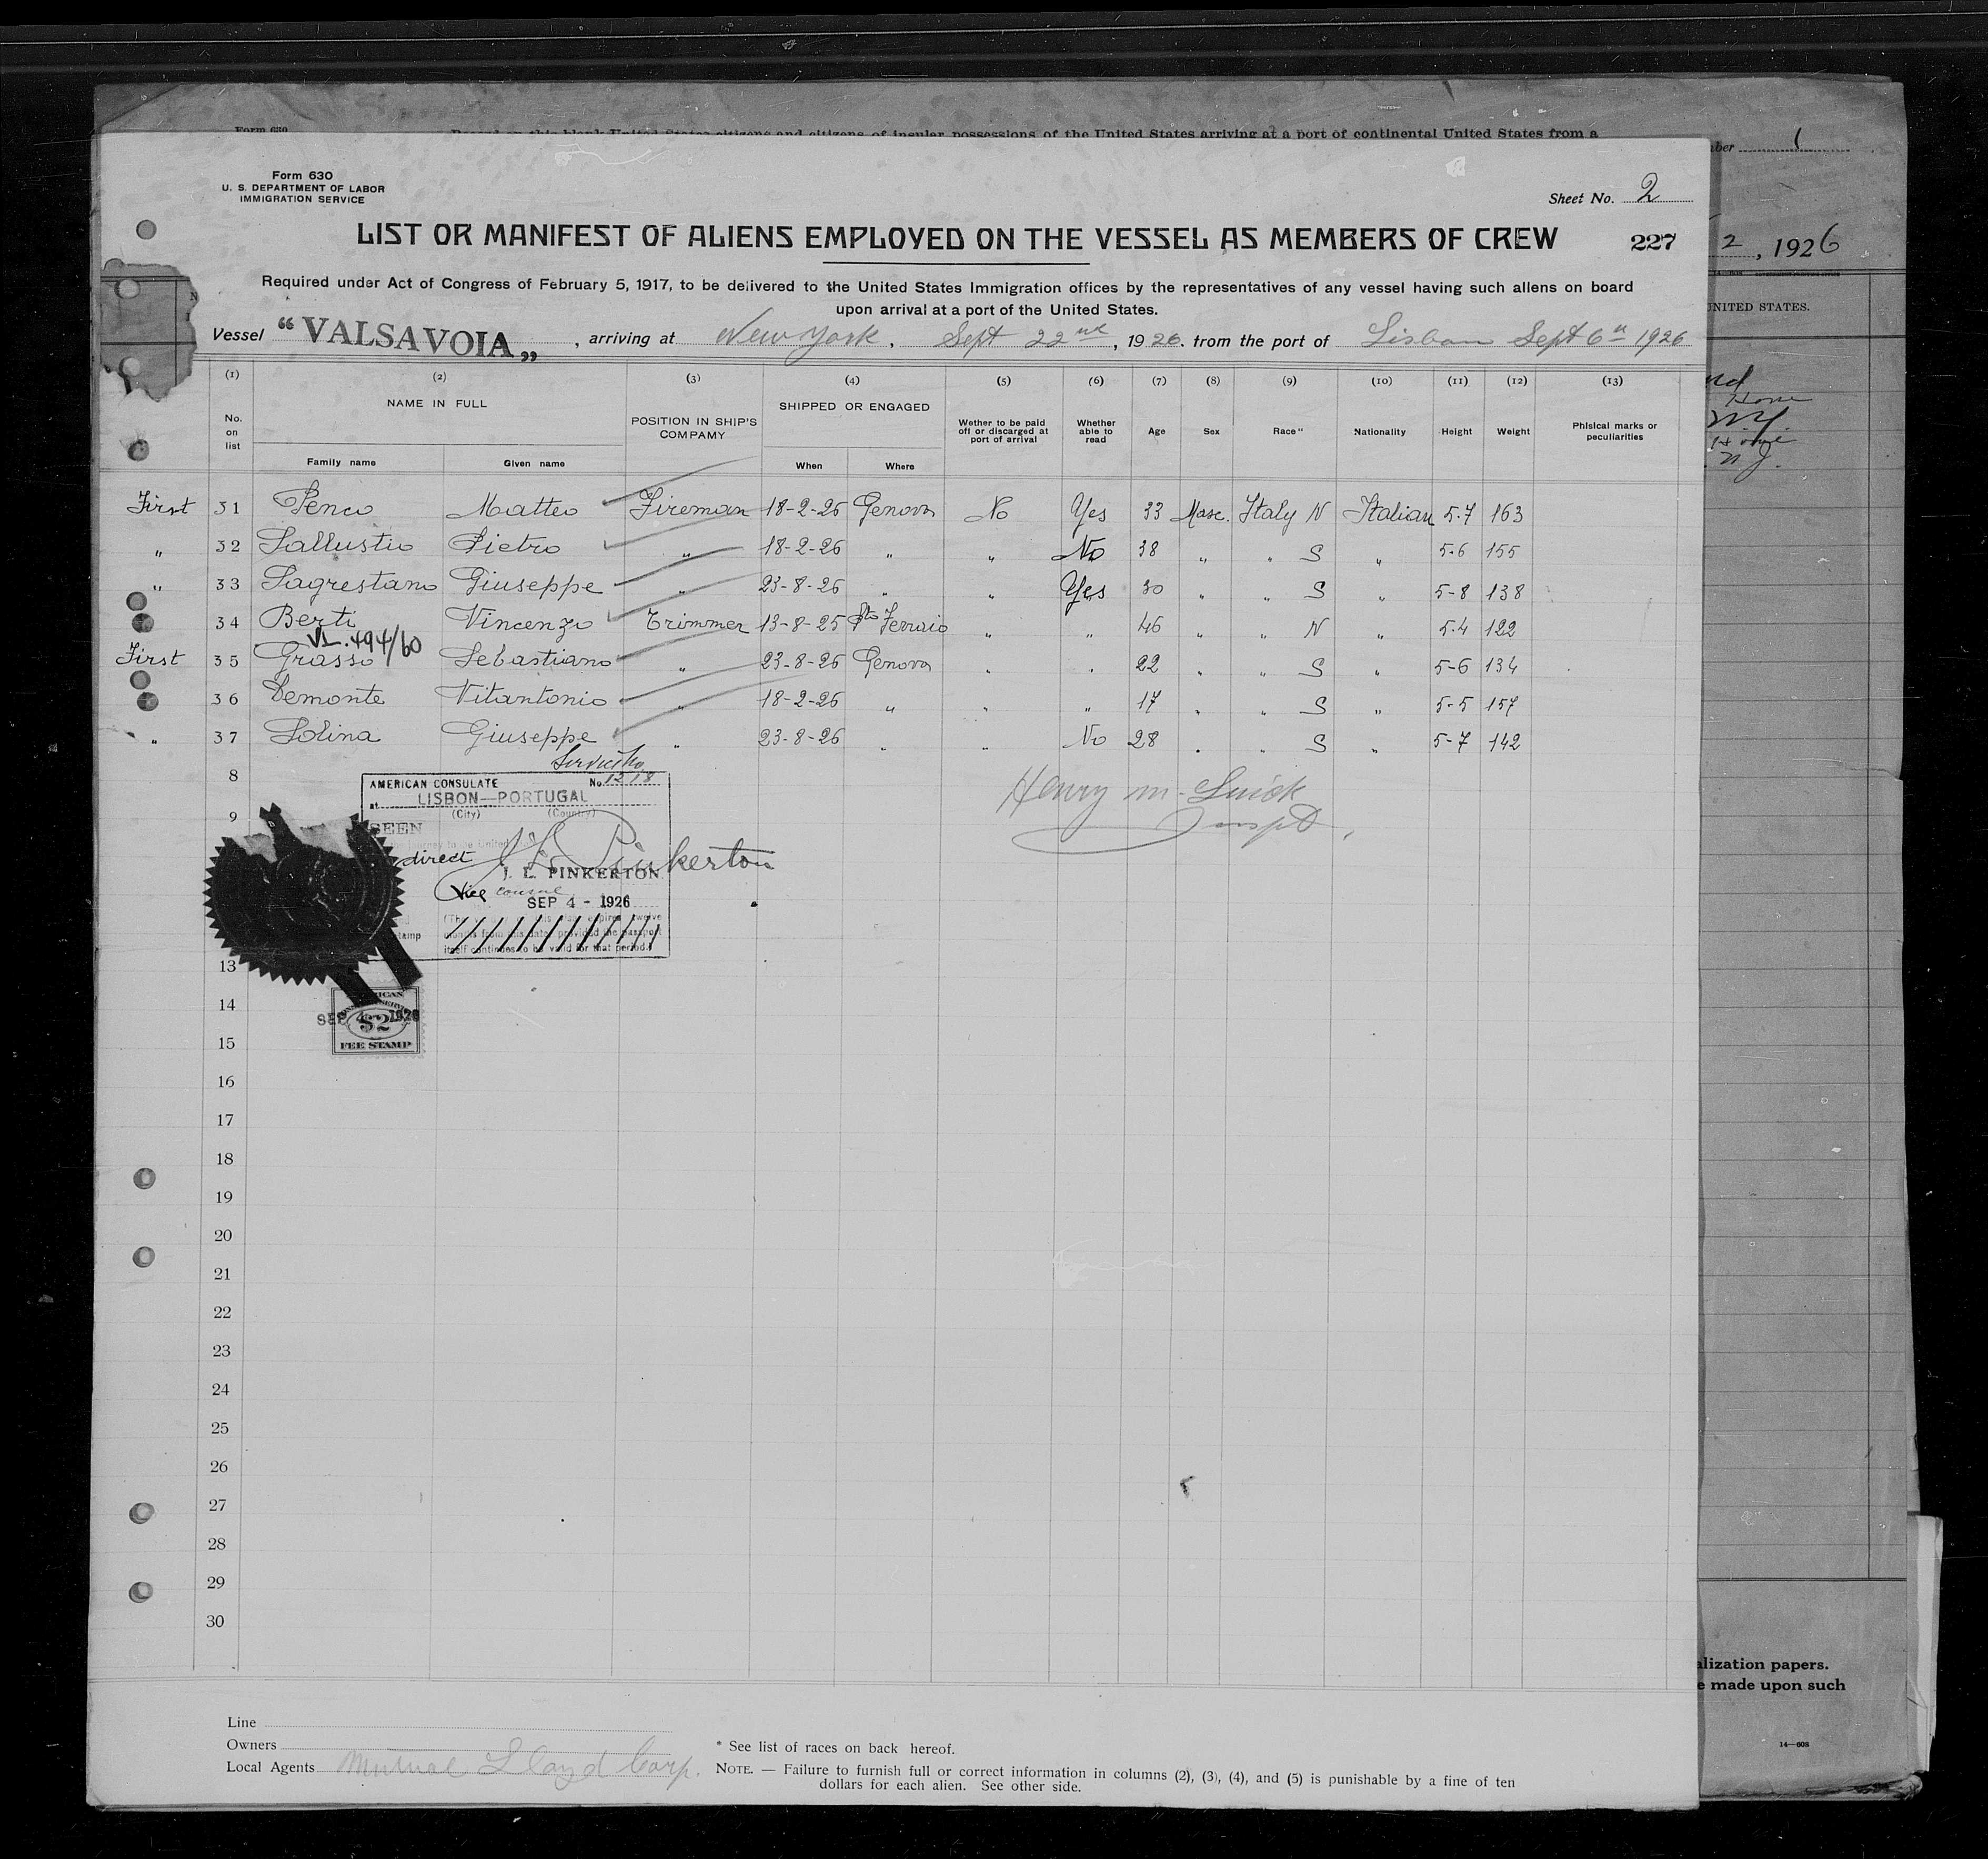 Form 630
Form 630
U. S. DEPARTMENT OF LABOR
IMMIGRATION SERVICE
Sheet No. 2
LIST OR MANIFEST OF ALIENS EMPLOYED ON THE VESSEL AS MEMBERS OF CREW
227
Required under Act of Congress of February 5, 1917, to be delivered to the United States Immigration offices by the representatives of any vessel having such allens on board
upon arrival at a port of the United States.
Vessel "VALSAVOIA„ , arriving at New York, Sept 22nd, 1926. trom the port of Lisbon Sept 6th 1926
(1) (2) (3) (4) (5) (6) (7) (8) (9) (10) (11) (12) (13)
No. on list NAME IN FULL POSITION IN SHIP'S COMPANY SHIPPED OR ENGAGED Wether to be paid off or discarged at port of arrival Whether able to read Age Sex Race" Nationality Height Weight Phisical marks or peculiarities
Family name Given name When Where
First 31 Penco Matteo Fireman 18-2-26 Genova No Yes 33 Masc. Italy N Italian 5.7 163
" 32 Sallustio Pietro " 18-2-26 " " No 38 " " S " 5-6 155
" 33 Sagrestano Giuseppe " 23-8-26 " " Yes 30 " " S " 5-8 138
34 Berti Vincenzo Trimmer 13-8-25 Pto Ferraio " " 46 " " N " 5.4 122
494/60
First 35 Grasso Sebastiano " 23-8-26 Genova " " 22 " " S " 5-6 134
36 Demonte Vitantonio " 18-2-26 " " " 17 " " S " 5-5 157
" 37 Solina Giuseppe " 23-8-26 " " No 28 " " S " 5-7 142
8
Service No
AMERICAN CONSULATE No. 1218
at LISBON—PORTUGAL
(City) (Country)
9
SEEN
direct J. L. Pinkerton
J. L. PINKERTON
Vice consul
SEP 4 - 1926
months from this date, provided the passport
itself continues to be valid for that period.)
Henry M.
Inspt.
13
14
SEP 4 1926
$2
FEE STAMP
15
16
17
18
19
20
21
22
23
24
25
26
27
28
29
30
Line
Owners
Local Agents Mutual Lloyd Corp.
* See list of races on back hereof.
NOTE. — Failure to furnish full or correct information in columns (2), (3), (4), and (5) is punishable by a fine of ten
dollars for each alien. See other side.
1
2, 1926
UNITED STATES.
Home
N.Y.
Home
N.J.
alization papers.
e made upon such
14—608